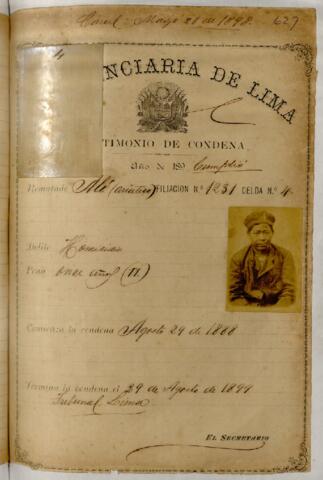 Marzo 21 de 1898 627
NCIARIA DE LIMA
TIMONIO DE CONDENA.
Año de 189 Cumplió
Rematado Alí (asiático) FILIACION N.º 1231 CELDA N.º 4
Delito Homicidio
Pena once años (11)
Comienza la condena Agosto 29 de 1888
Termina la condena el 29 de Agosto de 1899
Tribunal Lima
EL SECRETARIO